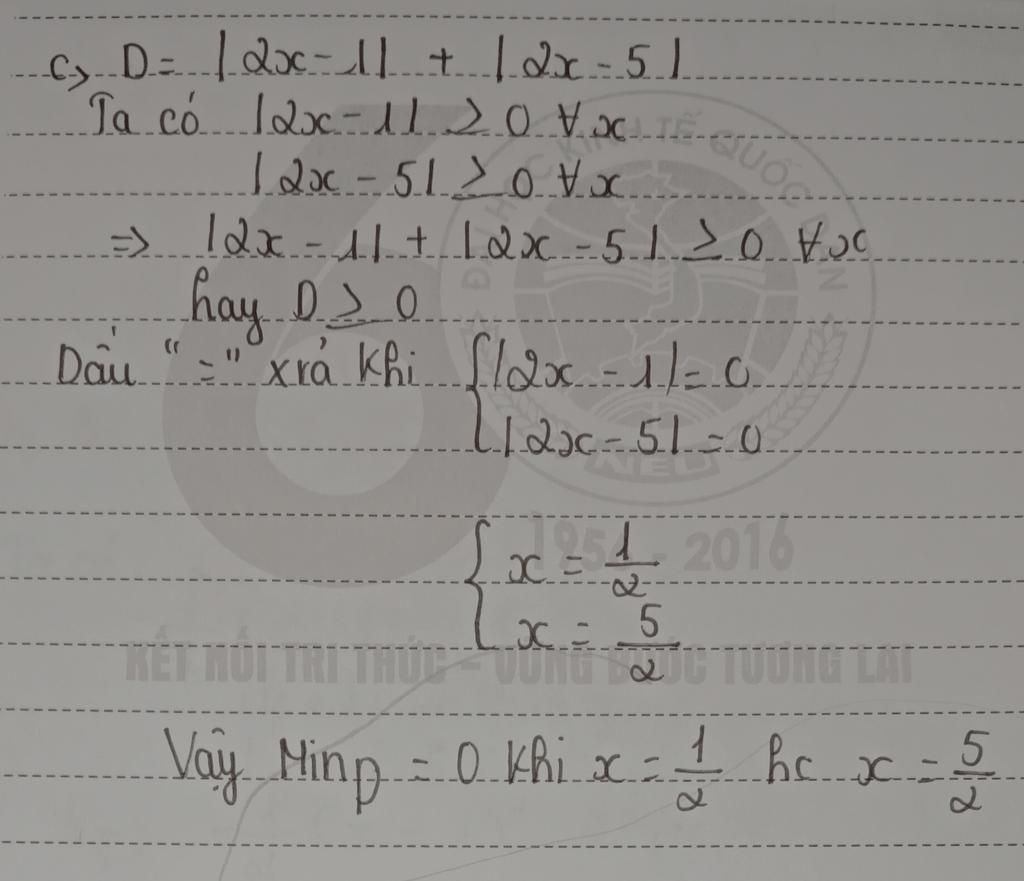 c, D = |2x - 1| + |2x - 5|
Ta có |2x - 1| ≥ 0 ∀x
|2x - 5| ≥ 0 ∀x
=> |2x - 1| + |2x - 5| ≥ 0 ∀x
hay D ≥ 0
Dấu "=" xrả khi { |2x - 1| = 0
|2x - 5| = 0
{ x = 1/2
x = 5/2
Vậy Min D = 0 khi x = 1/2 hc x = 5/2
ĐẠI HỌC KINH TẾ QUỐC DÂN
NEU
1956 - 2016
KẾT NỐI TRI THỨC – VỮNG BƯỚC TƯƠNG LAI